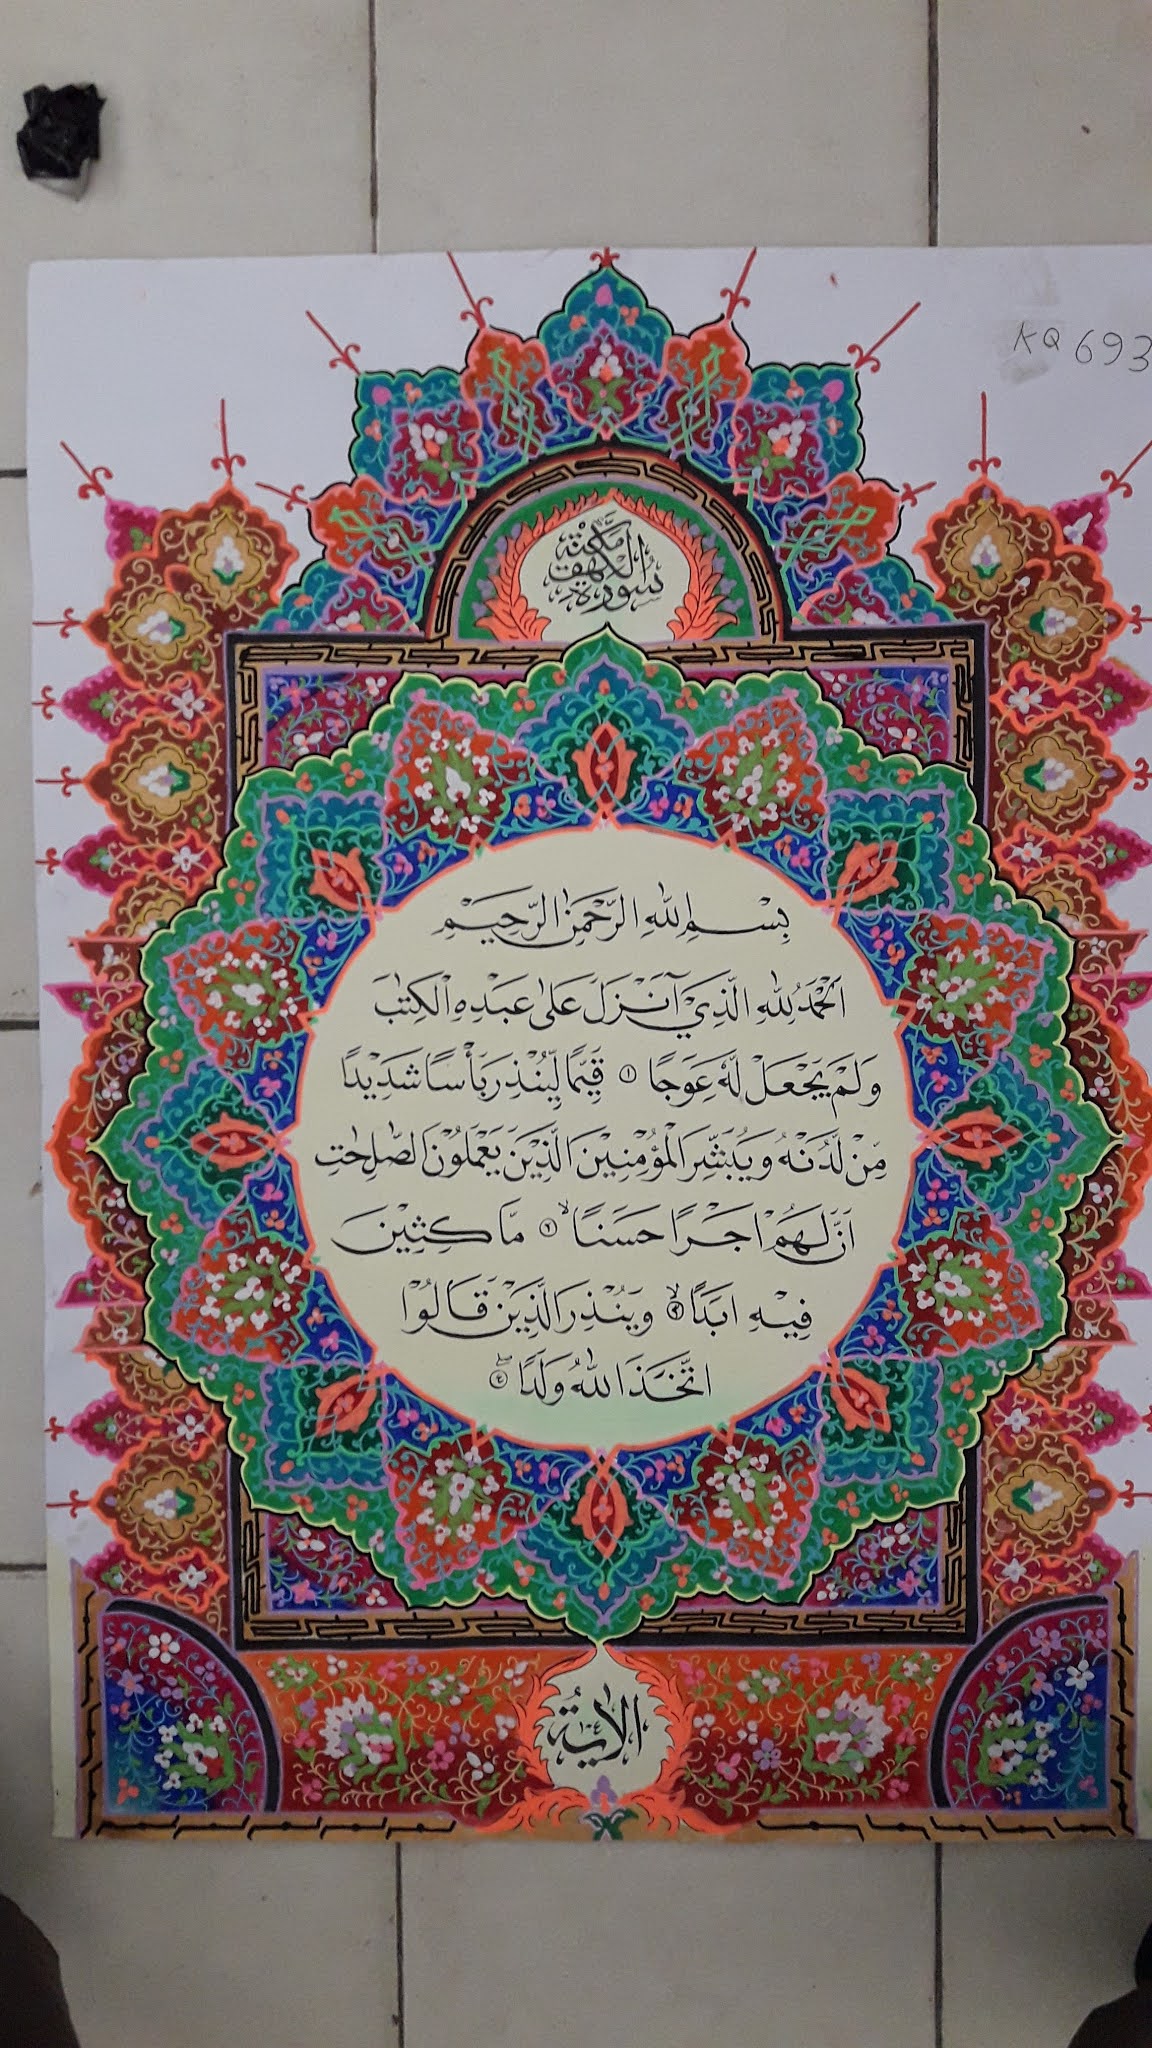 KQ 693
سُوْرَةُ الْكَهْفِ
مَكِّيَّةٌ
بِسْمِ اللّٰهِ الرَّحْمٰنِ الرَّحِيْمِ
اَلْحَمْدُ لِلّٰهِ الَّذِيْٓ اَنْزَلَ عَلٰى عَبْدِهِ الْكِتٰبَ
وَلَمْ يَجْعَلْ لَّهٗ عِوَجًا ۝١ قَيِّمًا لِّيُنْذِرَ بَأْسًا شَدِيْدًا
مِّنْ لَّدُنْهُ وَيُبَشِّرَ الْمُؤْمِنِيْنَ الَّذِيْنَ يَعْمَلُوْنَ الصّٰلِحٰتِ
اَنَّ لَهُمْ اَجْرًا حَسَنًاۙ ۝٢ مَّاكِثِيْنَ
فِيْهِ اَبَدًاۙ ۝٣ وَيُنْذِرَ الَّذِيْنَ قَالُوا
اتَّخَذَ اللّٰهُ وَلَدًاۖ ۝٤
الاٰية